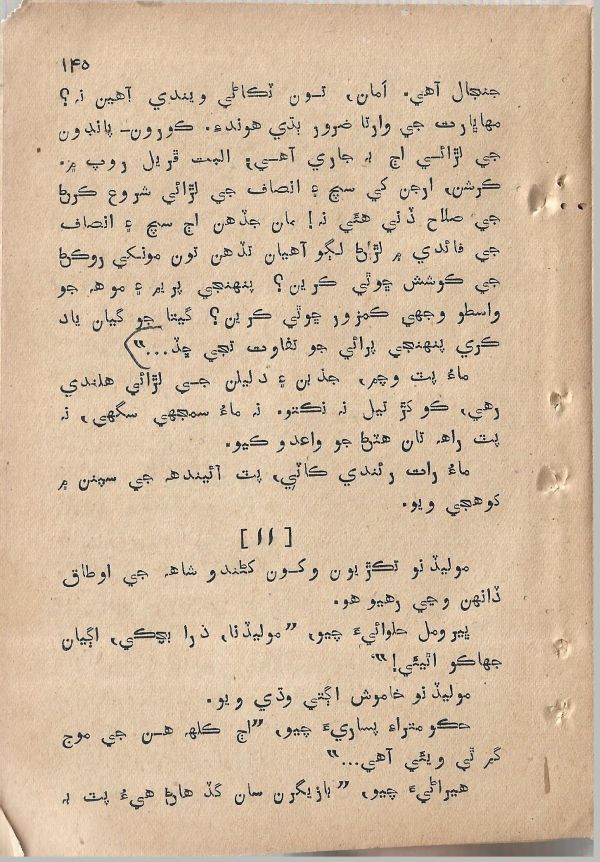 ۱۴۵
جنجال آهي. اَمان، تون ٽڪاڻي ويندي آهين نہ؟
مهاڀارت جي وارتا ضرور ٻڌي هوندءِ. ڪورون- پانڊون
جي لڙائي اڄ بہ جاري آهي، البت ڦريل روپ ۾.
ڪرشن، ارجن کي سچ ۽ انصاف جي لڙائي شروع ڪرڻ
جي صلاح ڏني هئي نہ! مان جڏهن اڄ سچ ۽ انصاف
جي فائدي ۾ لڙڻ لڳو آهيان تڏهن تون مونکي روڪڻ
جي ڪوشش ڇوٿي ڪرين؟ پنهنجي پريم ۽ موهہ جو
واسطو وجهي ڪمزور ڇوٿي ڪرين؟ گيتا جو گيان ياد
ڪري پنهنجي پرائي جو تفاوت تجي ڇڏ...“
ماءُ پٽ وچ۾، جذبن ۽ دليلن جي لڙائي هلندي
رهي، ڪو کڙ تيل نہ نڪتو. نہ ماءُ سمجهي سگهي، نہ
پٽ راهہ تان هٽڻ جو واعدو ڪيو.
ماءُ رات رئندي ڪاٽي، پٽ آئيندهہ جي سپنن ۾
کوهجي ويو.
[ ۱۱ ]
موليڏنو تڪڙيون وکون کڻندو شاهہ جي اوطاق
ڏانهن وڃي رهيو هو.
ڀيرومل حلوائيءَ چيو، ”موليڏنا، ذرا بچڪي، اڳيان
جهاڪو اٿيئي!“
موليڏنو خاموش اڳتي وڌي ويو.
حڪومتراءِ پساريءَ چيو، ”اڄ ڪلهہ هن جي موج
گم ٿي ويئي آهي...“
هيراڻيءَ چيو، ”بازيگرن سان گڏ هاڻ هيءُ پٽ بہ